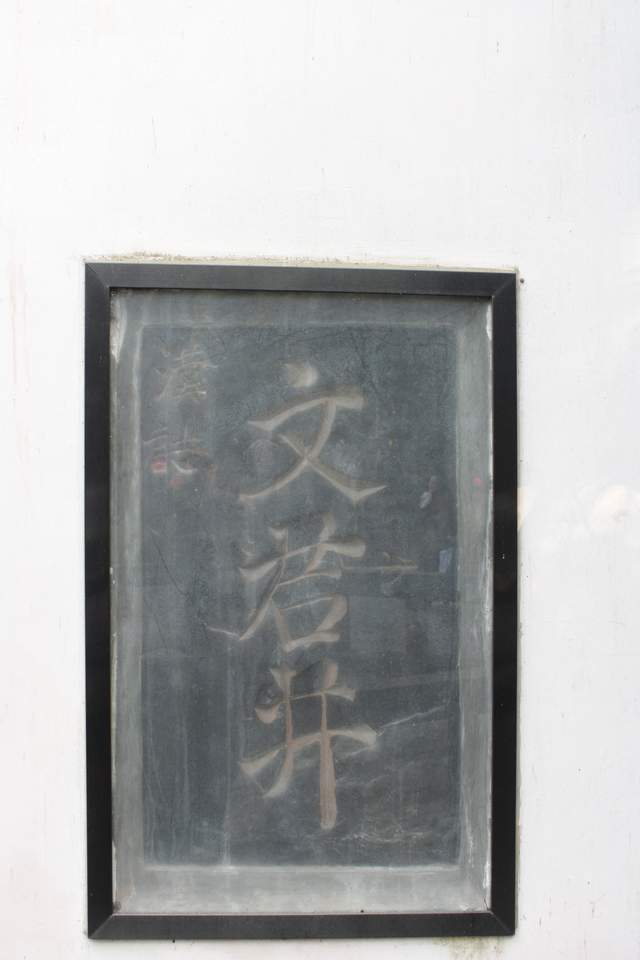 文君井